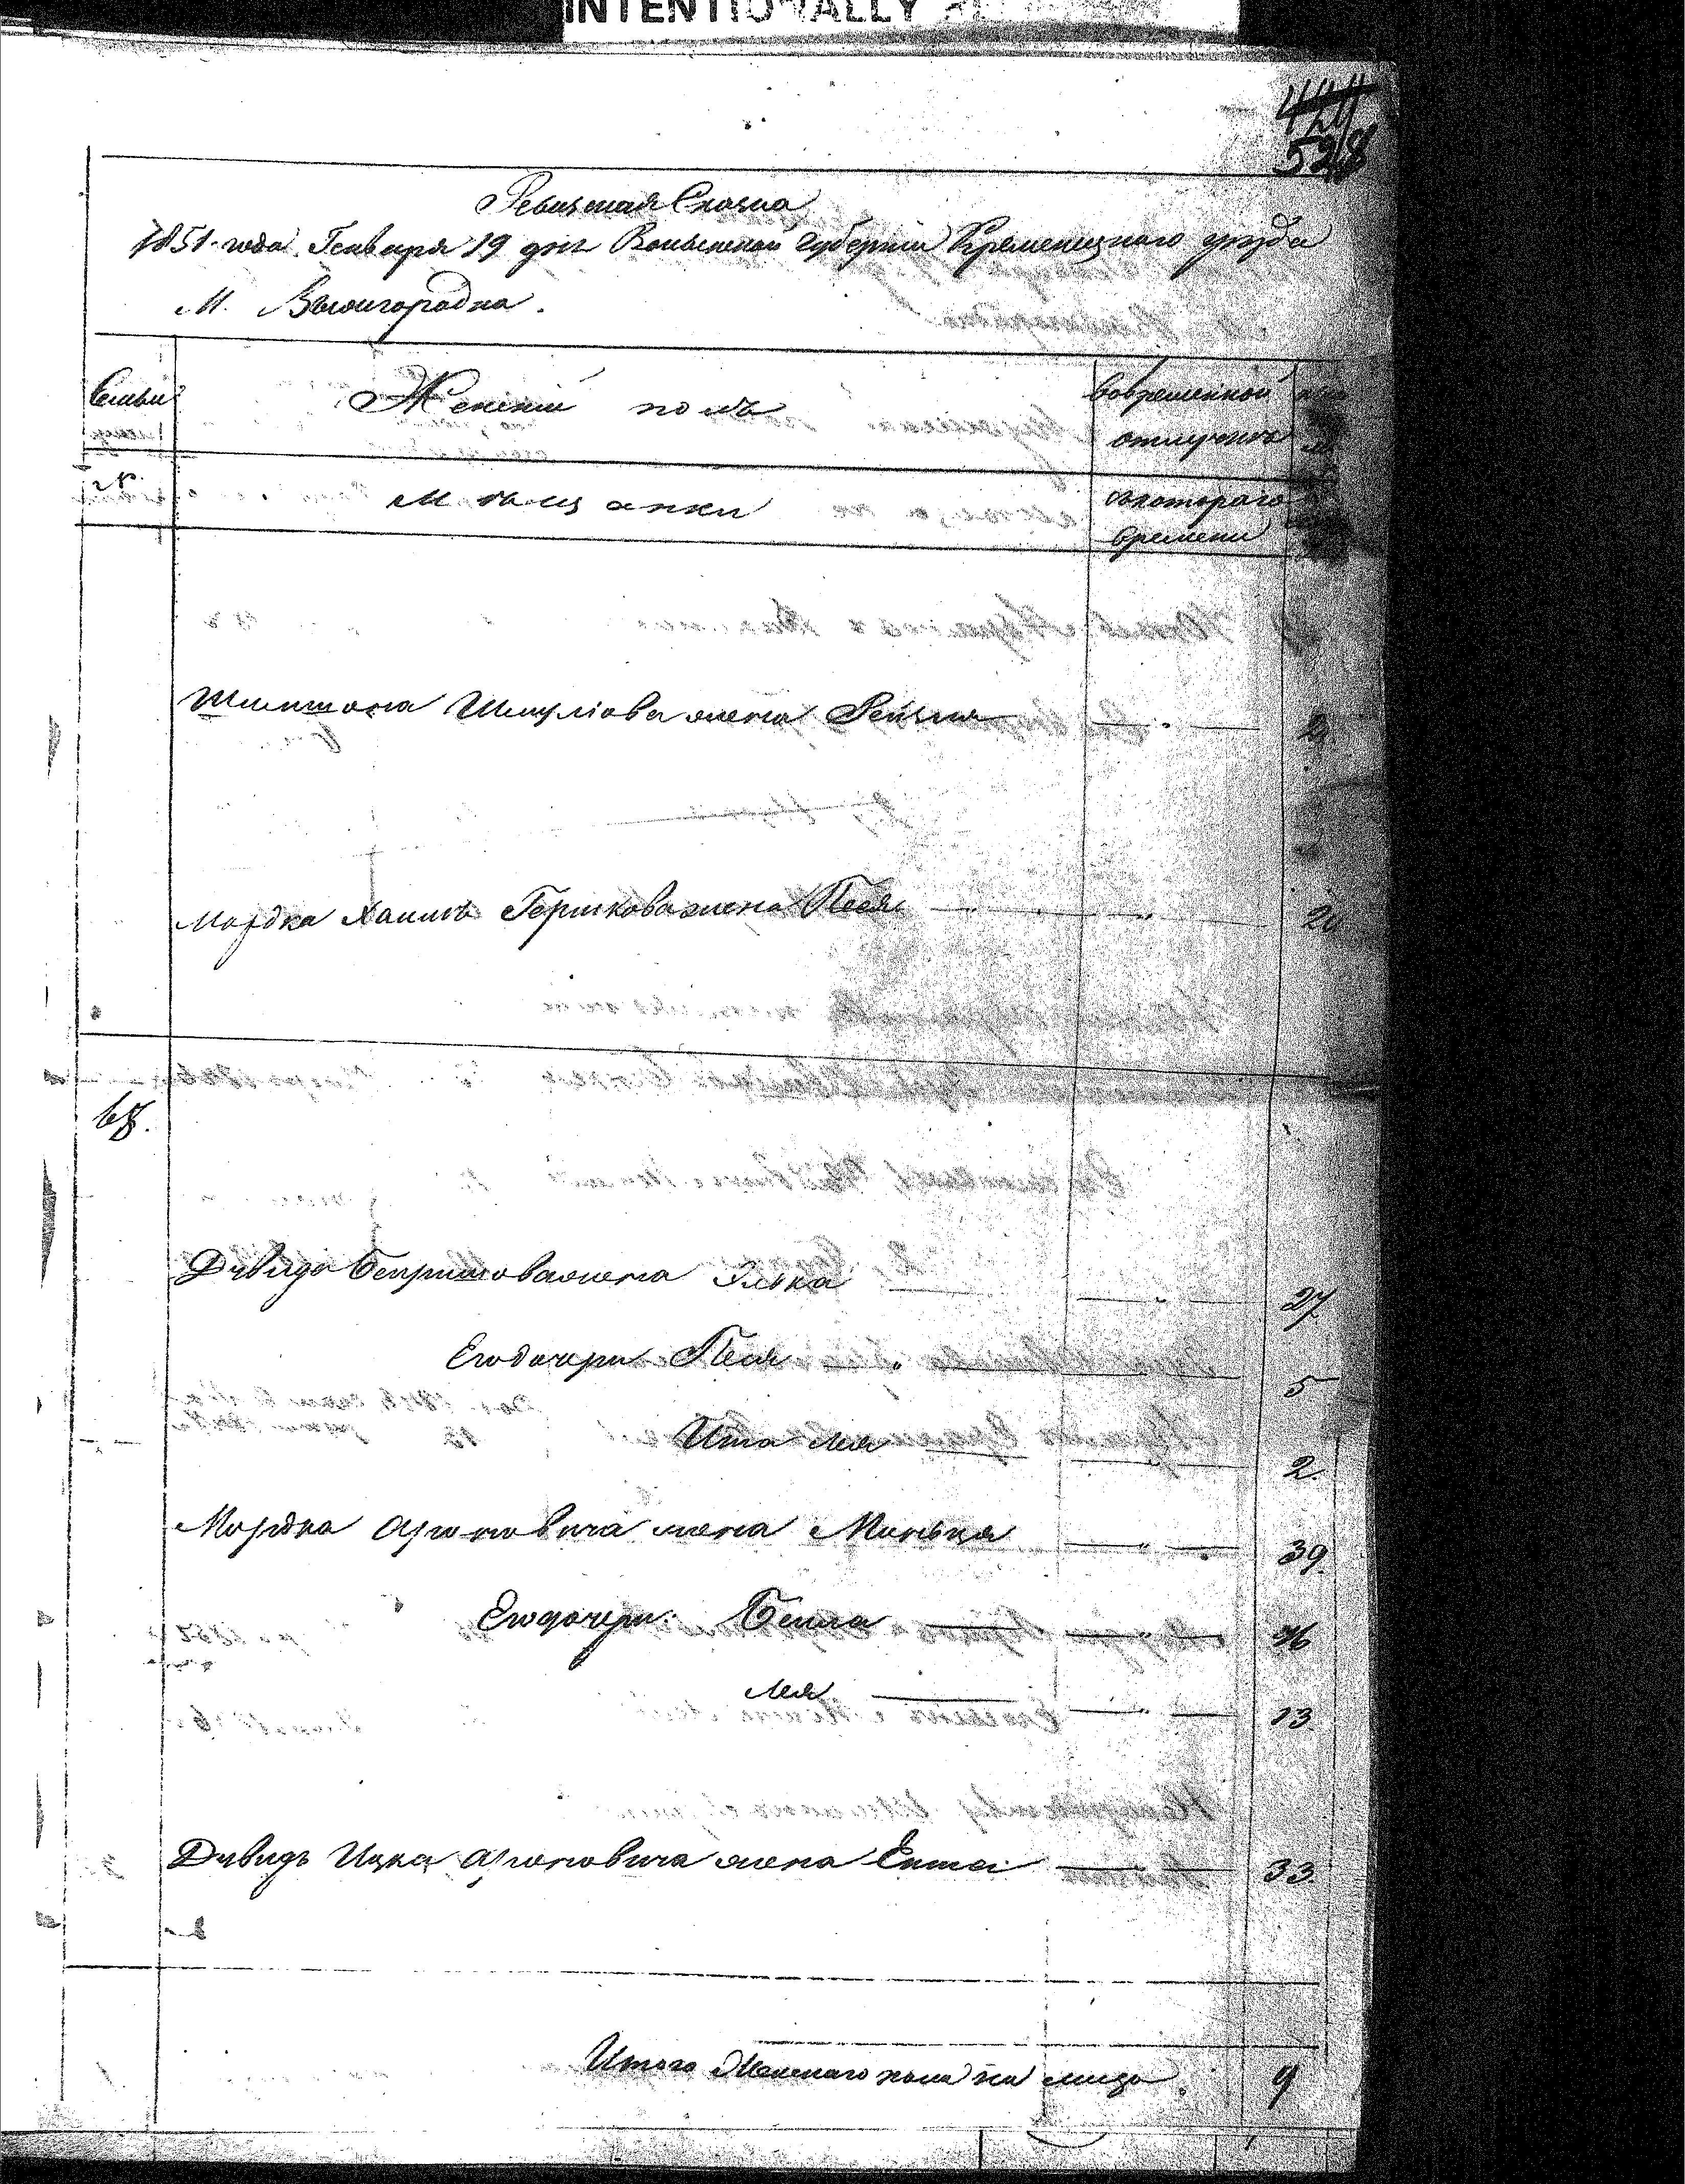 INTENTIONALLY
424
528
Ревизская Сказка
1851 года Генваря 19 дня Волынской Губернии Кременецкаго уезда
М. Вышгородка.
Семьи
Женский полъ
Вовременной
отлучке
№
Мѣщанки
съкотораго
времени
Шимшона Шмулiова жена Рейзя " 2
Мордка Хаимъ Гершкова жена Песя " 20
68.
Дувида Беиришова жена Элька " 27
Егодочери Песя " 5
Ита Лея " 2.
Мордка Ароновича жена Миньця " 39.
Егодочери: Беила " 16
Лея " 13
Дувидъ Ицка Ароновича жена Ента 33.
Итого Женскаго пола на лицо 9